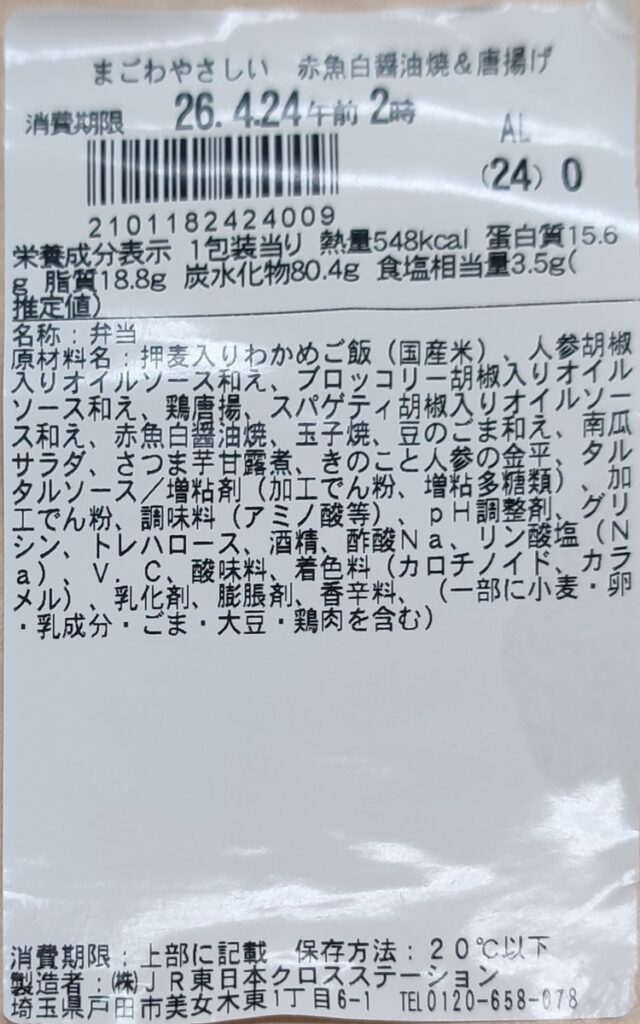 まごわやさしい 赤魚白醤油焼＆唐揚げ
消費期限 26.4.24午前 2時
AL
(24) 0
2101182424009
栄養成分表示 1包装当り 熱量548kcal 蛋白質15.6
g 脂質18.8g 炭水化物80.4g 食塩相当量3.5g(
推定値)
名称：弁当
原材料名：押麦入りわかめご飯（国産米）、人参胡椒
入りオイルソース和え、ブロッコリー胡椒入りオイル
ソース和え、鶏唐揚、スパゲティ胡椒入りオイルソー
ス和え、赤魚白醤油焼、玉子焼、豆のごま和え、南瓜
サラダ、さつま芋甘露煮、きのこと人参の金平、タル
タルソース／増粘剤（加工でん粉、増粘多糖類）、加
工でん粉、調味料（アミノ酸等）、ｐＨ調整剤、グリ
シン、トレハロース、酒精、酢酸Ｎａ、リン酸塩（Ｎ
ａ）、Ｖ．Ｃ、酸味料、着色料（カロチノイド、カラ
メル）、乳化剤、膨脹剤、香辛料、（一部に小麦・卵
・乳成分・ごま・大豆・鶏肉を含む）
消費期限：上部に記載 保存方法：２０℃以下
製造者：㈱ＪＲ東日本クロスステーション
埼玉県戸田市美女木東1丁目6-1 TEL0120-658-078